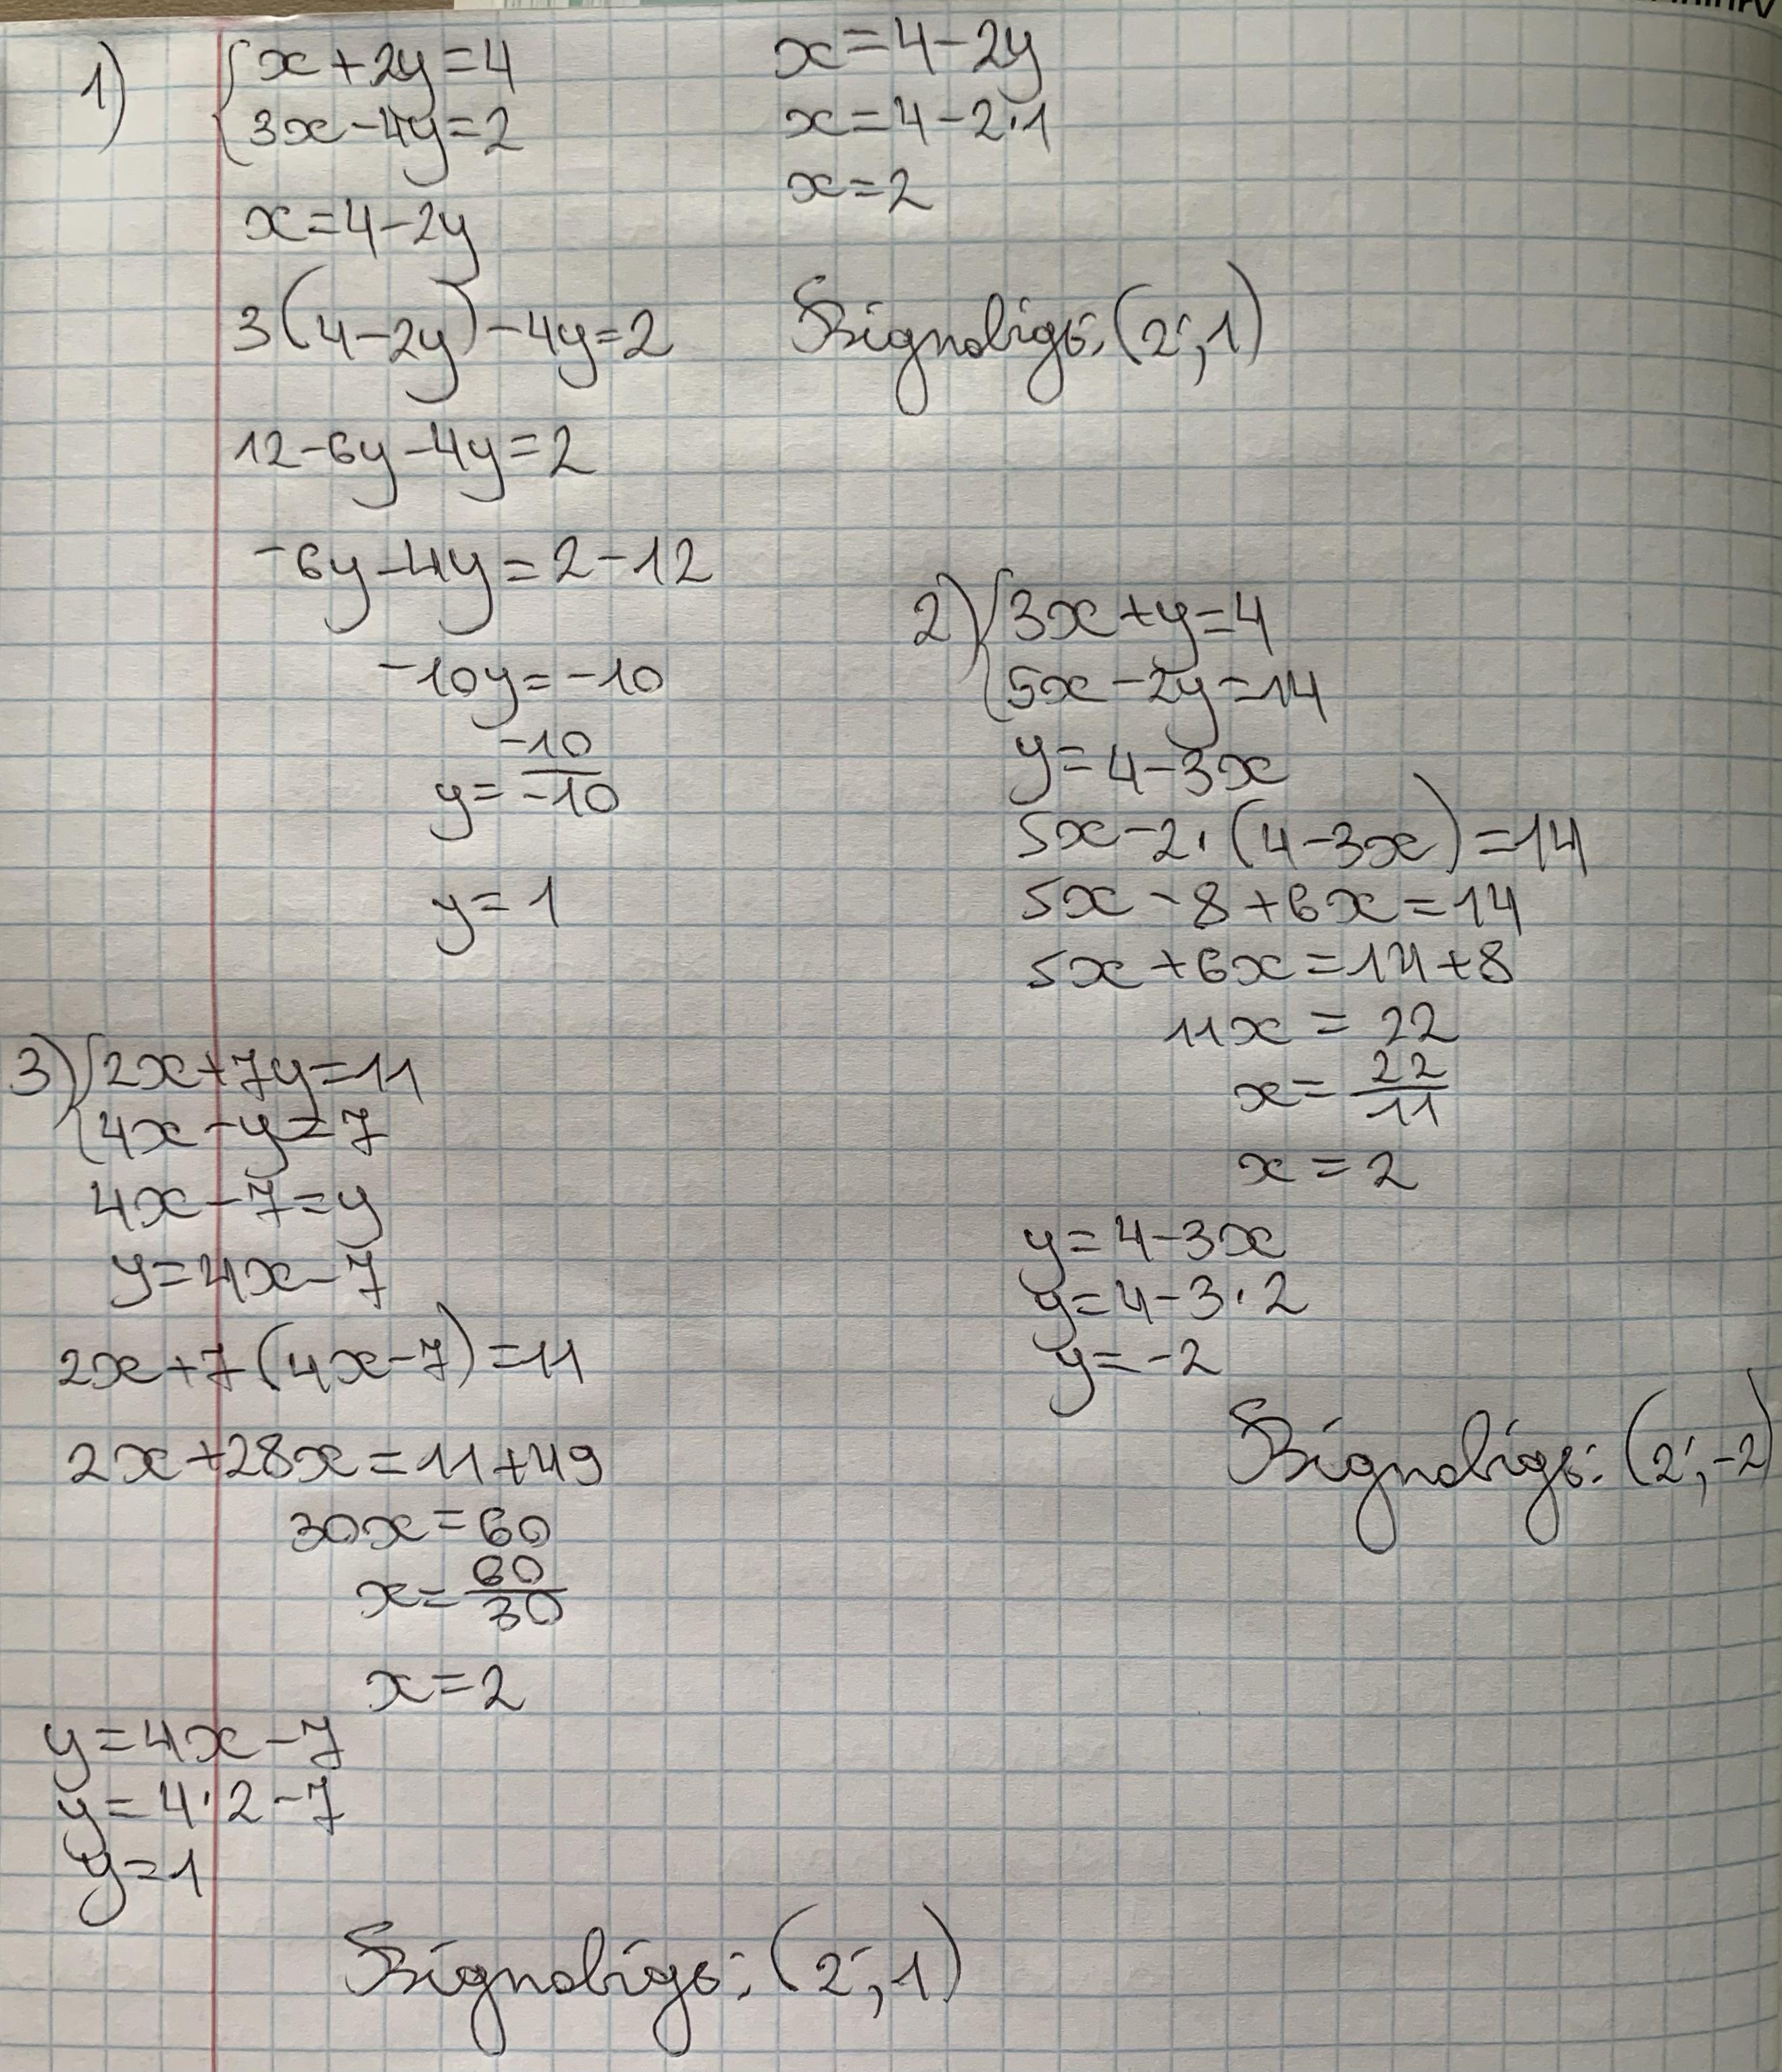 1) { x+2y=4
3x-4y=2
x=4-2y
3(4-2y)-4y=2
12-6y-4y=2
-6y-4y=2-12
-10y=-10
y=-10/-10
y=1
x=4-2y
x=4-2·1
x=2
(2;1)
2) { 3x+y=4
5x-2y=14
y=4-3x
5x-2·(4-3x)=14
5x-8+6x=14
5x+6x=14+8
11x=22
x=22/11
x=2
y=4-3x
y=4-3·2
y=-2
(2;-2)
3) { 2x+7y=11
4x-y=7
4x-7=y
y=4x-7
2x+7(4x-7)=11
2x+28x=11+49
30x=60
x=60/30
x=2
y=4x-7
y=4·2-7
y=1
(2;1)